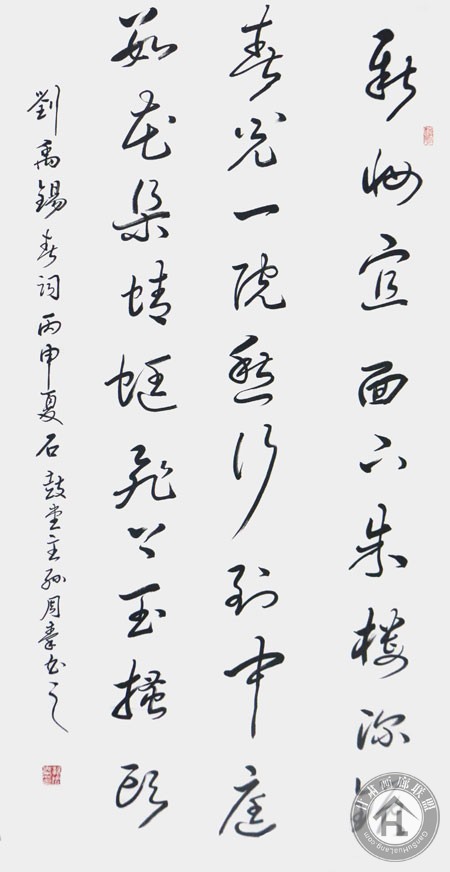 新妝宜面下朱樓深鎖
春光一院愁行到中庭
數花朵蜻蜓飛上玉搔頭
劉禹錫春詞丙申夏石鼓堂主孫周秦書之
甘肃画廊联盟
GanSuHuaLang.com